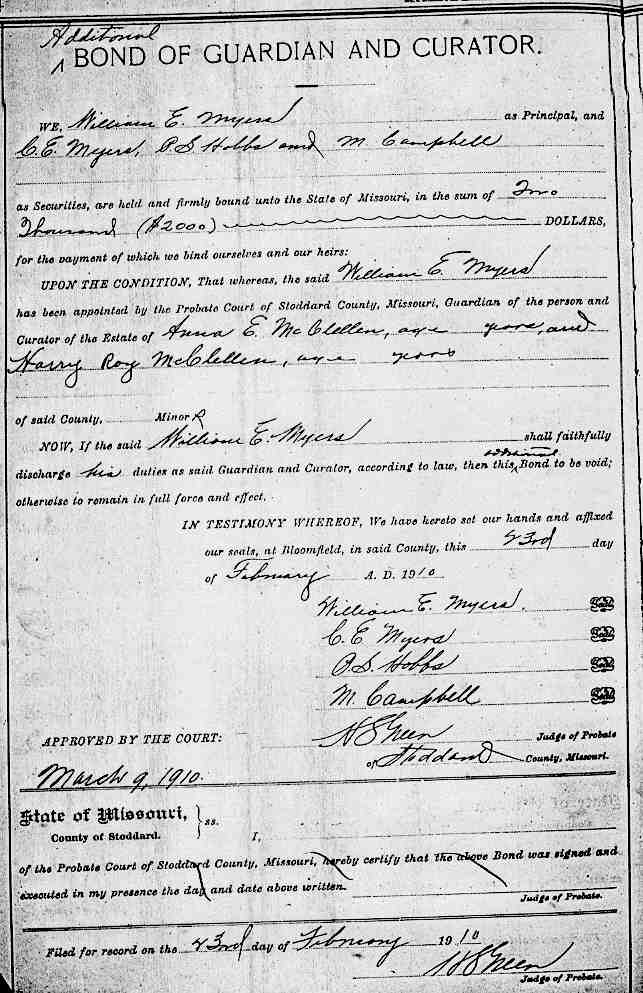 Additional
^ BOND OF GUARDIAN AND CURATOR.
WE, William E. Myers as Principal, and
C. E. Meyers, P. S. Hobbs and M Campbell
as Securities, are held and firmly bound unto the State of Missouri, in the sum of Two
Thousand ($2000) DOLLARS,
for the payment of which we bind ourselves and our heirs:
UPON THE CONDITION, That whereas, the said William E. Myers
has been appointed by the Probate Court of Stoddard County, Missouri, Guardian of the person and
Curator of the Estate of Anna E. McClellen, age years, and
Harry Roy McClellen, age years
of said County, Minors
NOW, If the said William E. Myers shall faithfully
additional
discharge his duties as said Guardian and Curator, according to law, then this ^ Bond to be void;
otherwise to remain in full force and effect.
IN TESTIMONY WHEREOF, We have hereto set our hands and affixed
our seals, at Bloomfield, in said County, this 23rd day
of February A. D. 1910
William E. Myers. Seal
C. E Myers Seal
P. S. Hobbs Seal
M. Campbell Seal
APPROVED BY THE COURT: Judge of Probate
of Stoddard County, Missouri.
March 9, 1910.
State of Missouri, } ss.
County of Stoddard. I,
of the Probate Court of Stoddard County, Missouri, hereby certify that the above Bond was signed and
executed in my presence the day and date above written.
Judge of Probate.
Filed for record on the 23rd day of February 1910
Judge of Probate.